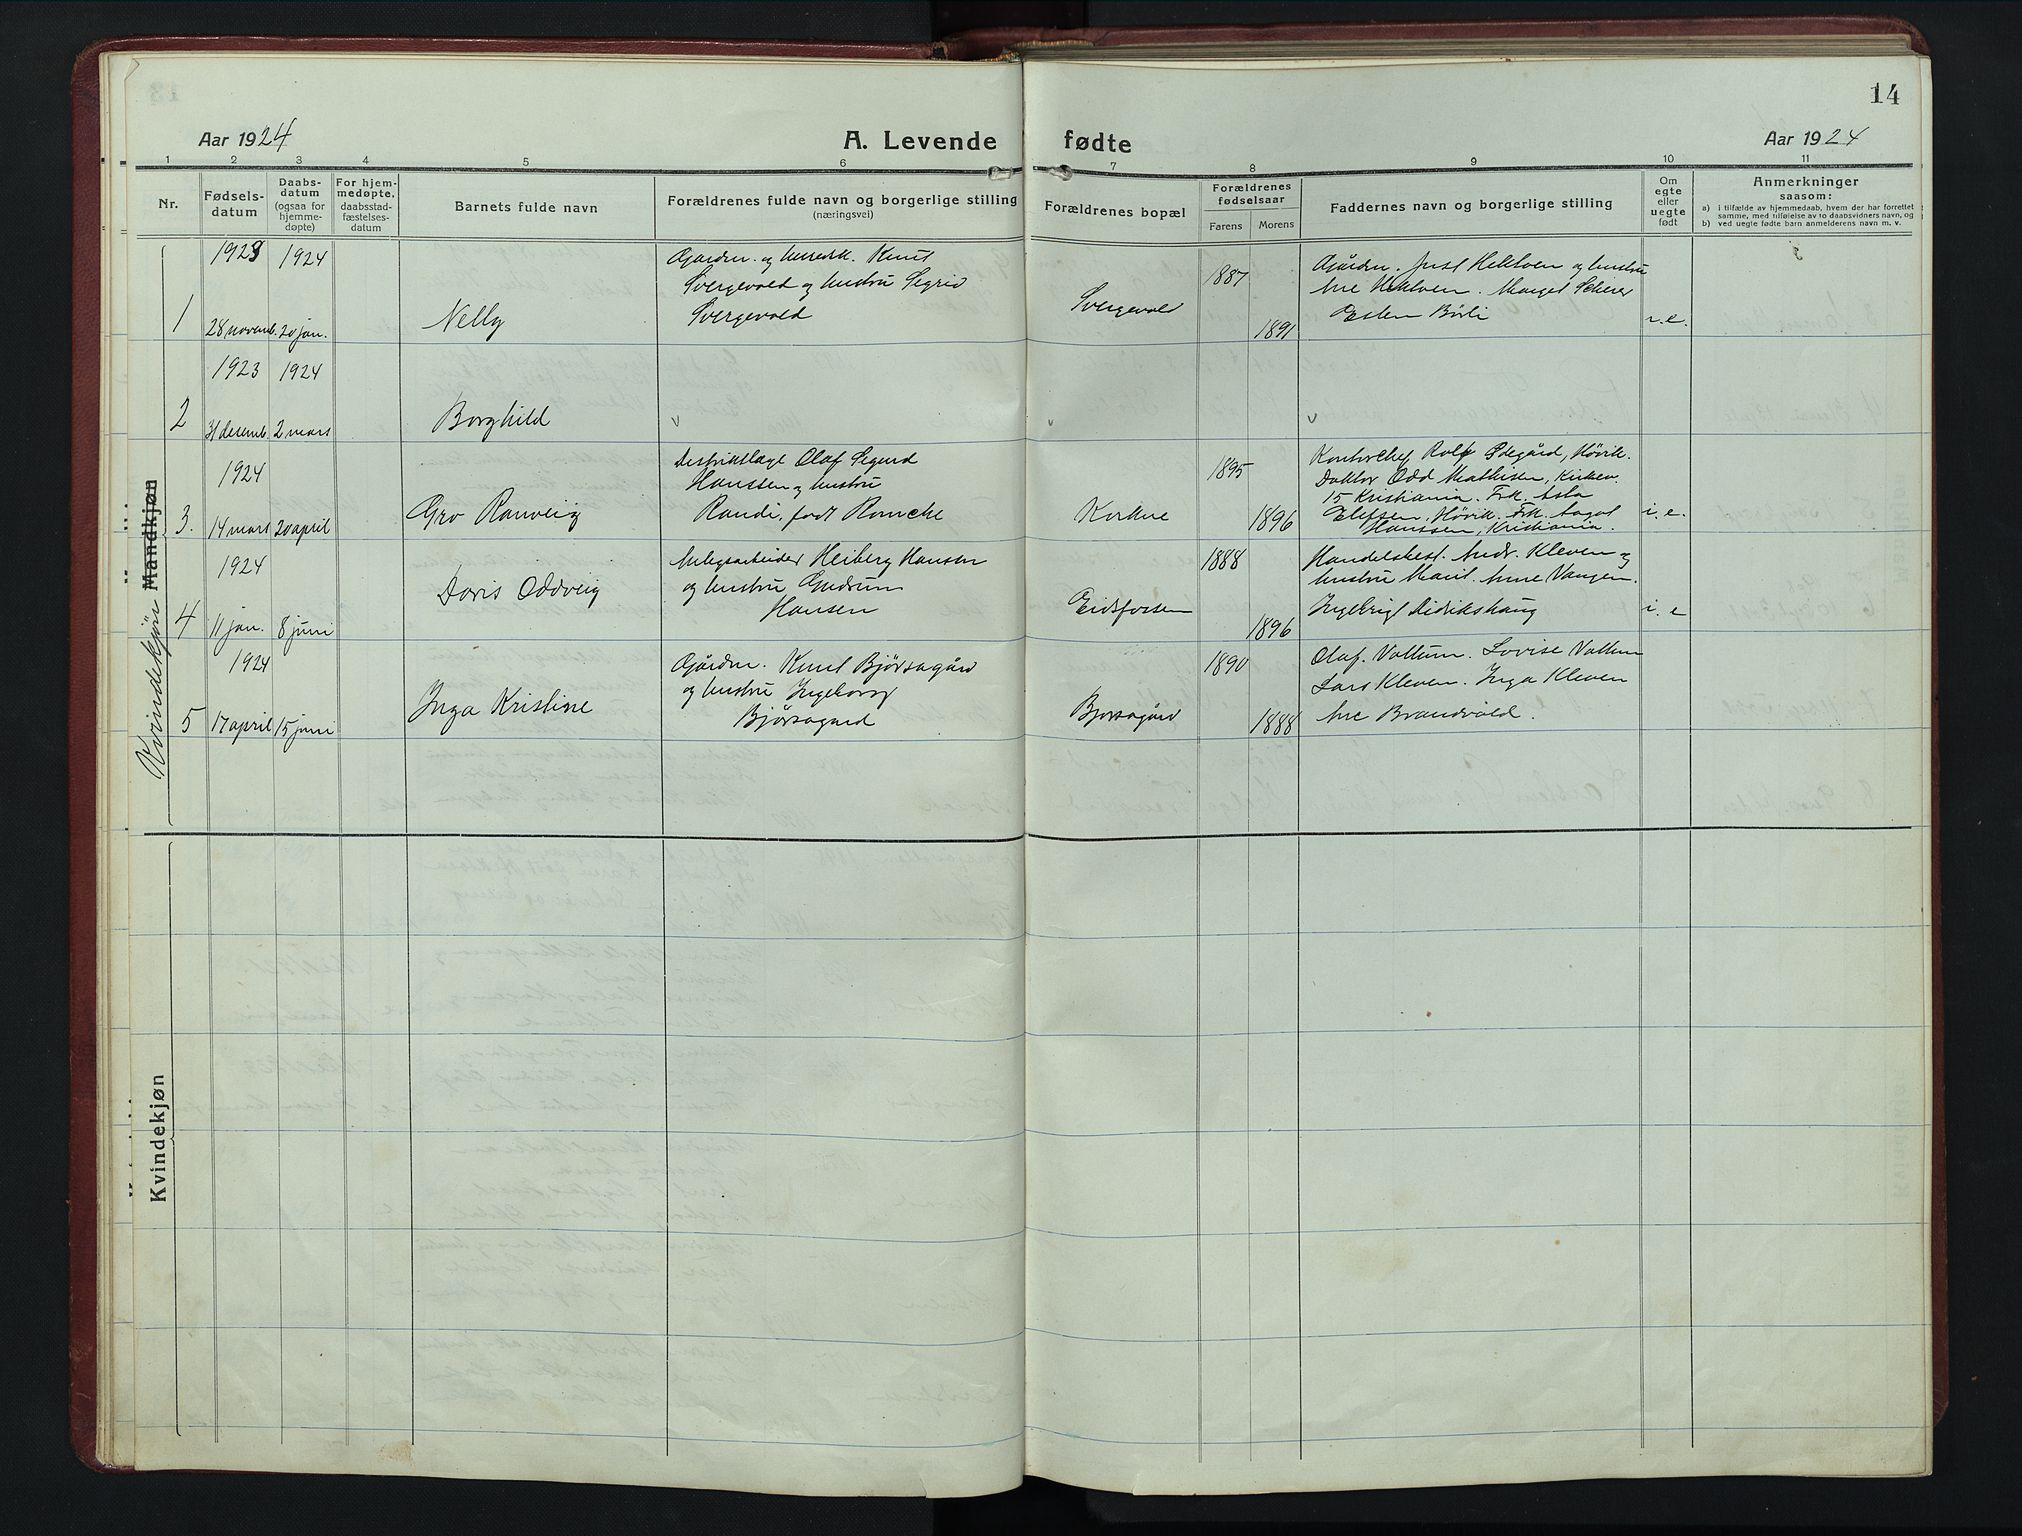 14
Aar 1924
A. Levende fødte
Aar 1924
1 2 3 4 5 6 7 8 9 10 11
Nr.
Fødsels-
datum
Daabs-
datum
(ogsaa for
hjemme-
døpte)
For hjem-
medøpte,
daabsstad-
fæstelses-
datum
Barnets fulde navn
Forældrenes fulde navn og borgerlige stilling
(næringsvei)
Forældrenes bopæl
Forældrenes
fødselsaar
Farens Morens
Faddernes navn og borgerlige stilling
Om
egte
eller
uegte
født
Anmerkninger
saasom:
a) i tilfælde av hjemmedaab, hvem der har forrettet
samme, med tilføielse av to daabsvidners navn, og
b) ved uegte fødte barn anmelderens navn m. v.
Mandkjøn
Kvindekjön
1
1923
28 novemb.
1924
20 jan.
Nelly
Gårdbr. og herredsk. Knut
Svergevold og hustru Sigrid
Svergevold
Svergevold
1887
1891
Gårdbr. Just Hektoen og hustru
Ane Hektoen. Marget Scherer
Esten Börli
2
1923
31 desemb.
1924
2 mars
Borghild
v
v
v
3.
1924
14 mars
20 april
Gro Ranveig
Distriktslæge Olaf Sigurd
Hanssen og hustru
Randi, født
Kirkne
1895
1896
Kontorchef Rolf Ødegård, Hövik.
Doktor Odd Mathisen, Kirkev.
15 Kristiania. Frk. Asta
Elefsen, Hövik. Frk. Aagot
Hanssen, Kristiania.
i. e.
4
1924
11 jan.
8 juni
Doris Oddveig
Anlegsarbeider Heiberg Hansen
og hustru Gudrun
Hansen
Eidsfossen
1888
1896
Handelsbest. Andr. Kleven og
hustru Marit. Anne Vangen.
Ingebrigt Didrikshaug
i. e
5
1924
17 april
15 juni
Inga Kristine
Gårdbr. Knut Bjørsagård
og hustru Ingeborg
Bjørsagaard
Bjorsagård
1890
1888
Olaf. Voltum. Lovise Voltum
Lars Kleven. Inga Kleven
Ane Brandvold.
Kvindekjøn